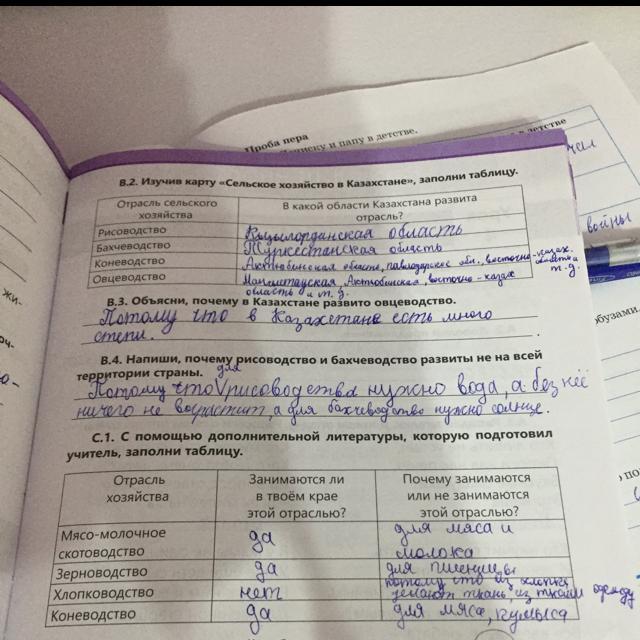 Проба пера
иску и папу в детстве.
в детстве
войны
В.2. Изучив карту «Сельское хозяйство в Казахстане», заполни таблицу.
Отрасль сельского хозяйства
В какой области Казахстана развита отрасль?
Рисоводство
Кызылординская область
Бахчеводство
Туркестанская область
Коневодство
Актюбинская область, павлодарская обл., восточно-казах. область и т.д.
Овцеводство
Мангыстауская, Актюбинская, восточно-казах область и т.д.
В.3. Объясни, почему в Казахстане развито овцеводство.
Потому что в Казахстане есть много
степи.
В.4. Напиши, почему рисоводство и бахчеводство развиты не на всей
территории страны.
Потому что для рисоводства нужно вода, а без неё
ничего не возрастит, а для бахчеводство нужно солнце.
С.1. С помощью дополнительной литературы, которую подготовил
учитель, заполни таблицу.
Отрасль хозяйства
Занимаются ли в твоём крае этой отраслью?
Почему занимаются или не занимаются этой отраслью?
Мясо-молочное скотоводство
да
для мяса и молока
Зерноводство
да
для пшеницы
Хлопководство
нет
потому что из хлопка делают ткань из ткани одежду
Коневодство
да
для мяса, кумыса
обузами.
жи-